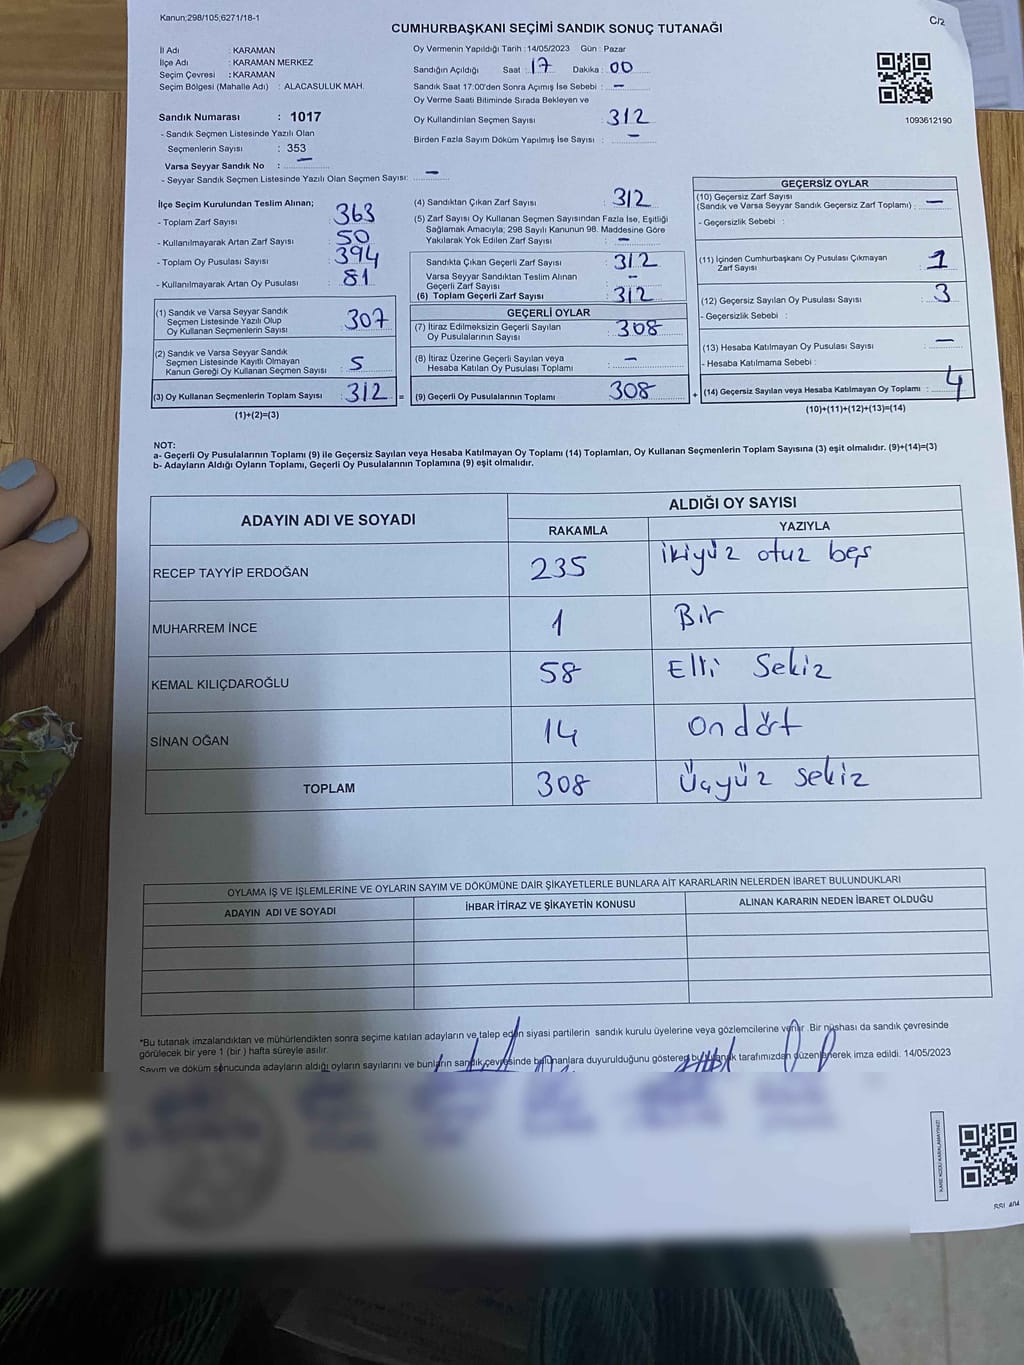 Kanun;298/105;6271/18-1
C/2
CUMHURBAŞKANI SEÇİMİ SANDIK SONUÇ TUTANAĞI
İl Adı : KARAMAN
İlçe Adı : KARAMAN MERKEZ
Seçim Çevresi : KARAMAN
Seçim Bölgesi (Mahalle Adı) : ALACASULUK MAH.
Sandık Numarası : 1017
- Sandık Seçmen Listesinde Yazılı Olan
Seçmenlerin Sayısı : 353
Varsa Seyyar Sandık No : —
- Seyyar Sandık Seçmen Listesinde Yazılı Olan Seçmen Sayısı: —
Oy Vermenin Yapıldığı Tarih : 14/05/2023 Gün : Pazar
Sandığın Açıldığı Saat : 17 Dakika : 00
Sandık Saat 17:00'den Sonra Açımış İse Sebebi : —
Oy Verme Saati Bitiminde Sırada Bekleyen ve
Oy Kullandırılan Seçmen Sayısı : 312
Birden Fazla Sayım Döküm Yapılmış İse Sayısı : —
1093612190
İlçe Seçim Kurulundan Teslim Alınan;
- Toplam Zarf Sayısı : 363
- Kullanılmayarak Artan Zarf Sayısı : 50
- Toplam Oy Pusulası Sayısı : 394
- Kullanılmayarak Artan Oy Pusulası : 81
(1) Sandık ve Varsa Seyyar Sandık
Seçmen Listesinde Yazılı Olup
Oy Kullanan Seçmenlerin Sayısı : 307
(2) Sandık ve Varsa Seyyar Sandık
Seçmen Listesinde Kayıtlı Olmayan
Kanun Gereği Oy Kullanan Seçmen Sayısı : 5
(3) Oy Kullanan Seçmenlerin Toplam Sayısı : 312 =
(1)+(2)=(3)
(4) Sandıktan Çıkan Zarf Sayısı : 312
(5) Zarf Sayısı Oy Kullanan Seçmen Sayısından Fazla İse, Eşitliği
Sağlamak Amacıyla; 298 Sayılı Kanunun 98. Maddesine Göre
Yakılarak Yok Edilen Zarf Sayısı : —
Sandıkta Çıkan Geçerli Zarf Sayısı : 312
Varsa Seyyar Sandıktan Teslim Alınan
Geçerli Zarf Sayısı : —
(6) Toplam Geçerli Zarf Sayısı : 312
GEÇERLİ OYLAR
(7) İtiraz Edilmeksizin Geçerli Sayılan
Oy Pusulalarının Sayısı : 308
(8) İtiraz Üzerine Geçerli Sayılan veya
Hesaba Katılan Oy Pusulası Toplamı : —
(9) Geçerli Oy Pusulalarının Toplamı : 308 +
GEÇERSİZ OYLAR
(10) Geçersiz Zarf Sayısı
(Sandık ve Varsa Seyyar Sandık Geçersiz Zarf Toplamı) : —
- Geçersizlik Sebebi :
(11) İçinden Cumhurbaşkanı Oy Pusulası Çıkmayan
Zarf Sayısı : 1
(12) Geçersiz Sayılan Oy Pusulası Sayısı : 3
- Geçersizlik Sebebi :
(13) Hesaba Katılmayan Oy Pusulası Sayısı : —
- Hesaba Katılmama Sebebi :
(14) Geçersiz Sayılan veya Hesaba Katılmayan Oy Toplamı : 4
(10)+(11)+(12)+(13)=(14)
NOT:
a- Geçerli Oy Pusulalarının Toplamı (9) ile Geçersiz Sayılan veya Hesaba Katılmayan Oy Toplamı (14) Toplamları, Oy Kullanan Seçmenlerin Toplam Sayısına (3) eşit olmalıdır. (9)+(14)=(3)
b- Adayların Aldığı Oyların Toplamı, Geçerli Oy Pusulalarının Toplamına (9) eşit olmalıdır.
ADAYIN ADI VE SOYADI ALDIĞI OY SAYISI
RAKAMLA YAZIYLA
RECEP TAYYİP ERDOĞAN 235 ikiyüz otuz beş
MUHARREM İNCE 1 Bir
KEMAL KILIÇDAROĞLU 58 Elli Sekiz
SİNAN OĞAN 14 On dört
TOPLAM 308 Üçyüz sekiz
OYLAMA İŞ VE İŞLEMLERİNE VE OYLARIN SAYIM VE DÖKÜMÜNE DAİR ŞİKAYETLERLE BUNLARA AİT KARARLARIN NELERDEN İBARET BULUNDUKLARI
ADAYIN ADI VE SOYADI İHBAR İTİRAZ VE ŞİKAYETİN KONUSU ALINAN KARARIN NEDEN İBARET OLDUĞU
*Bu tutanak imzalandıktan ve mühürlendikten sonra seçime katılan adayların ve talep eden siyasi partilerin sandık kurulu üyelerine veya gözlemcilerine verilir. Bir nüshası da sandık çevresinde
görülecek bir yere 1 (bir ) hafta süreyle asılır.
Sayım ve döküm sonucunda adayların aldığı oyların sayılarını ve bunların sandık çevresinde bulunanlara duyurulduğunu gösteren bu tutanak tarafımızdan düzenlenerek imza edildi. 14/05/2023